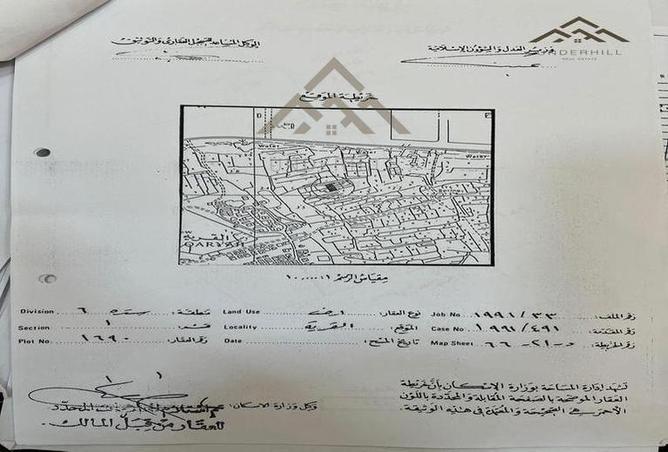 الوكيل المساعد للتسجيل العقاري والتوثيق
وزير العدل والشؤون الإسلامية
DERHILL
REAL ESTATE
خريطة الموقع
D
E
Water
Water
القرية
QARYAH
مقياس الرسم ١:١٠٠٠٠
Division ٦ سترة منطقة: Land Use ارض نوع العقار: Job No ١٩٩١/٣٣ رقم الملف:
Section ١ قسم: Locality القرية الموقع: Case No ١٩٩١/٤٩١ رقم المقدمة:
Plot No ١٦٩٠ رقم العقار: Date تاريخ المنح: Map Sheet رقم الخريطة:
تشهد ادارة المساحة بوزارة الإسكان بأن خريطة
العقار الموضحة بالصفحة المقابلة والمحددة باللون
الأحمر هي الصحيحة والمعتمدة في هذه الوثيقة.
وكيل وزارة الاسكان:
للعقار من قبل المالك.